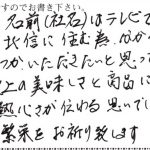 すのでお書き下さい。
名前(社名)はテレビで
北信に住む為、なか
つかいただきたいと思って
上の美味しさと商品に
熱心さが伝わる思いでし
繁栄をお祈り致します